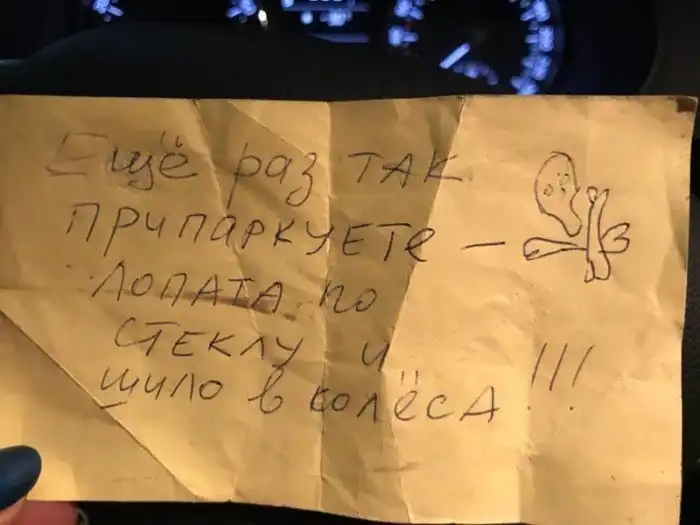 Ещё раз ТАК
ПРИПАРКУЕТЕ —
ЛОПАТА ПО
СТЕКЛУ И
ШИЛО В КОЛЁСА !!!